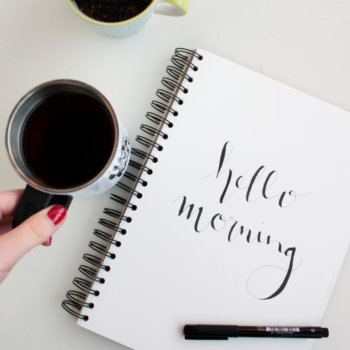 hello
morning